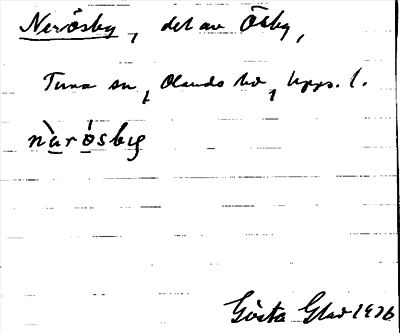 Nerösby, del av Ösby,
Tuna sn, Olands hd, Upps. l.
nàrósby
Gösta Glad 1926